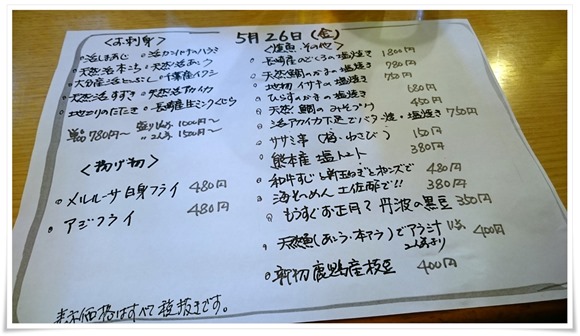 5月26日(金)
<お刺身>
◦活しまあじ ◦活カンパチのハラミ
◦天然活本こち ◦天然活あこう
◦大分産活とらぶし ◦千葉産イワシ
◦天然活すずき ◦天然活アカイカ
◦地ゴリのたたき ◦長崎産生ミンクくじら
単品780円~ 盛り1人前1000円~
〃2人前1500円~
<揚げ物>
◦メルルーサ白身フライ 480円
◦アジフライ 480円
<焼魚、その他>
◦長崎産のどぐろの塩焼き 1800円
◦天然鯛のかまの塩焼き 780円
◦地物イサキの塩焼き 750円
◦ひらすのかまの塩焼き 680円
◦天然鯛のみそづけ 450円
◦活アカイカ下足でバター焼・塩焼き 750円
◦ササミ串(梅・わさび) 150円
◦熊本産塩トマト 380円
◦和牛すじと新玉ねぎとポンズで 480円
◦海そうめん土佐酢で!! 380円
◦もうすぐお正月?丹波の黒豆 350円
◦天然魚(あこう・本アラ)でアラ汁 400円
◦新物鹿児島産枝豆 400円
表示価格はすべて税抜きです。